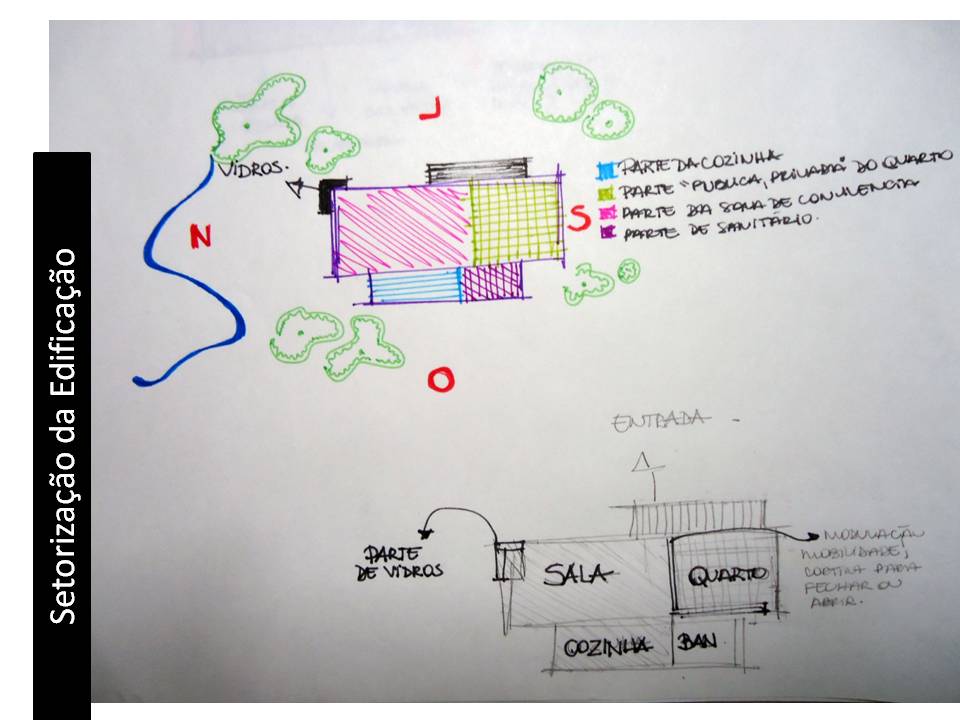 Setorização da Edificação
L
VIDROS.
N
S
O
PARTE DA COZINHA
PARTE "PUBLICA, PRIVADA" DO QUARTO
PARTE DA SALA DE CONVIVENCIA
PARTE DE SANITÁRIO.
ENTRADA -
PARTE
DE VIDROS
SALA
QUARTO
COZINHA
BAN
MODULAÇÃO
MOBILIDADE,
CORTINA PARA
FECHAR OU
ABRIR.